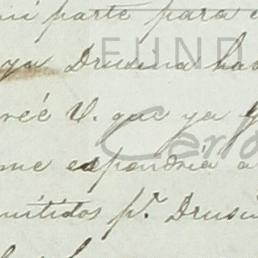 mi parte para e
ya Drusina ha
creé V. que ya
me expondria a
mitidos pr. Drusi